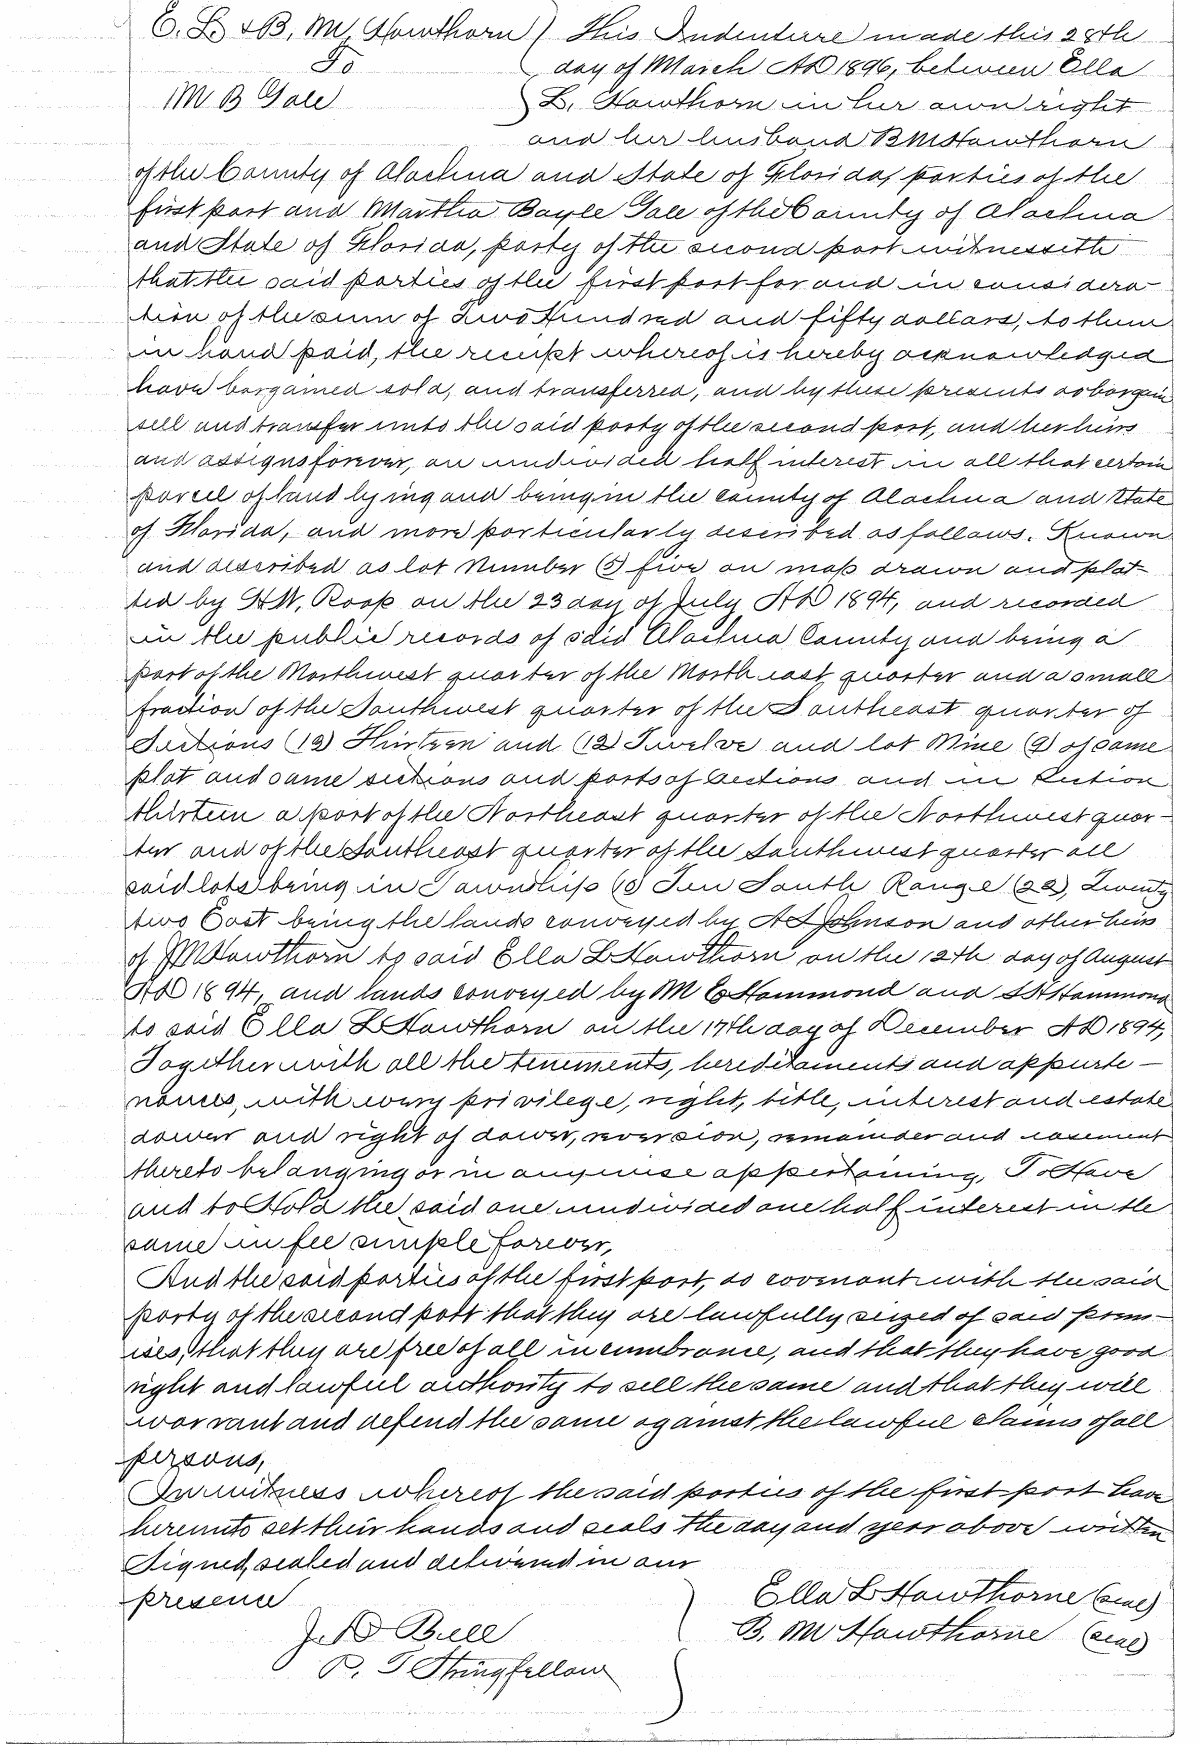 E. L. & B. M. Hawthorn
To
M B Gale
This Indenture made this 28th
day of March AD 1896, between Ella
L. Hawthorn in her own right
and her husband B M Hawthorn
of the County of Alachua and State of Florida, parties of the
first part and Martha Bayle Gale of the County of Alachua
and State of Florida, party of the second part witnesseth
that the said parties of the first part for and in considera-
tion of the sum of Two Hundred and fifty dollars, to them
in hand paid, the receipt whereof is hereby acknowledged
have bargained sold, and transferred, and by these presents do bargain
sell and transfer unto the said party of the second part, and her heirs
and assigns forever, an undivided half interest in all that certain
parcel of land lying and being in the county of Alachua and State
of Florida, and more particularly described as follows. Known
and described as lot Number (5) five on map drawn and plat-
ted by H W, Roop on the 23 day of July AD 1894, and recorded
in the public records of said Alachua County and being a
part of the Northwest quarter of the North east quarter and a small
fraction of the Southwest quarter of the Southeast quarter of
Sections (13) Thirteen and (12) Twelve and lot Nine (9) of same
plat and same sections and parts of sections and in Section
thirteen a part of the Northeast quarter of the Northwest quar-
ter and of the Southeast quarter of the Southwest quarter all
said lots being in Township (10) Ten South Range (22), Twenty
two East being the lands conveyed by A S Johnson and other heirs
of J M Hawthorn to said Ella L Hawthorn on the 12th day of August
AD 1894, and lands conveyed by M E Hammond and S H Hammond
to said Ella L Hawthorn on the 17th day of December AD 1894,
Together with all the tenements, hereditaments and appurte-
nances, with every privilege, right, title, interest and estate
dower and right of dower, reversion, remainder and easement
thereto belonging or in anywise appertaining, To Have
and to Hold the said one undivided one half interest in the
same in fee simple forever,
And the said parties of the first part, do covenant with the said
party of the second part that they are lawfully seized of said prem-
ises, that they are free of all incumbrance, and that they have good
right and lawful authority to sell the same and that they will
warrant and defend the same against the lawful claims of all
persons,
In witness whereof the said parties of the first part have
hereunto set their hands and seals the day and year above written
Signed, sealed and delivered in our
presence
Ella L Hawthorne (seal)
B. M Hawthorne (seal)
J. D Bull
R. T Stringfellow